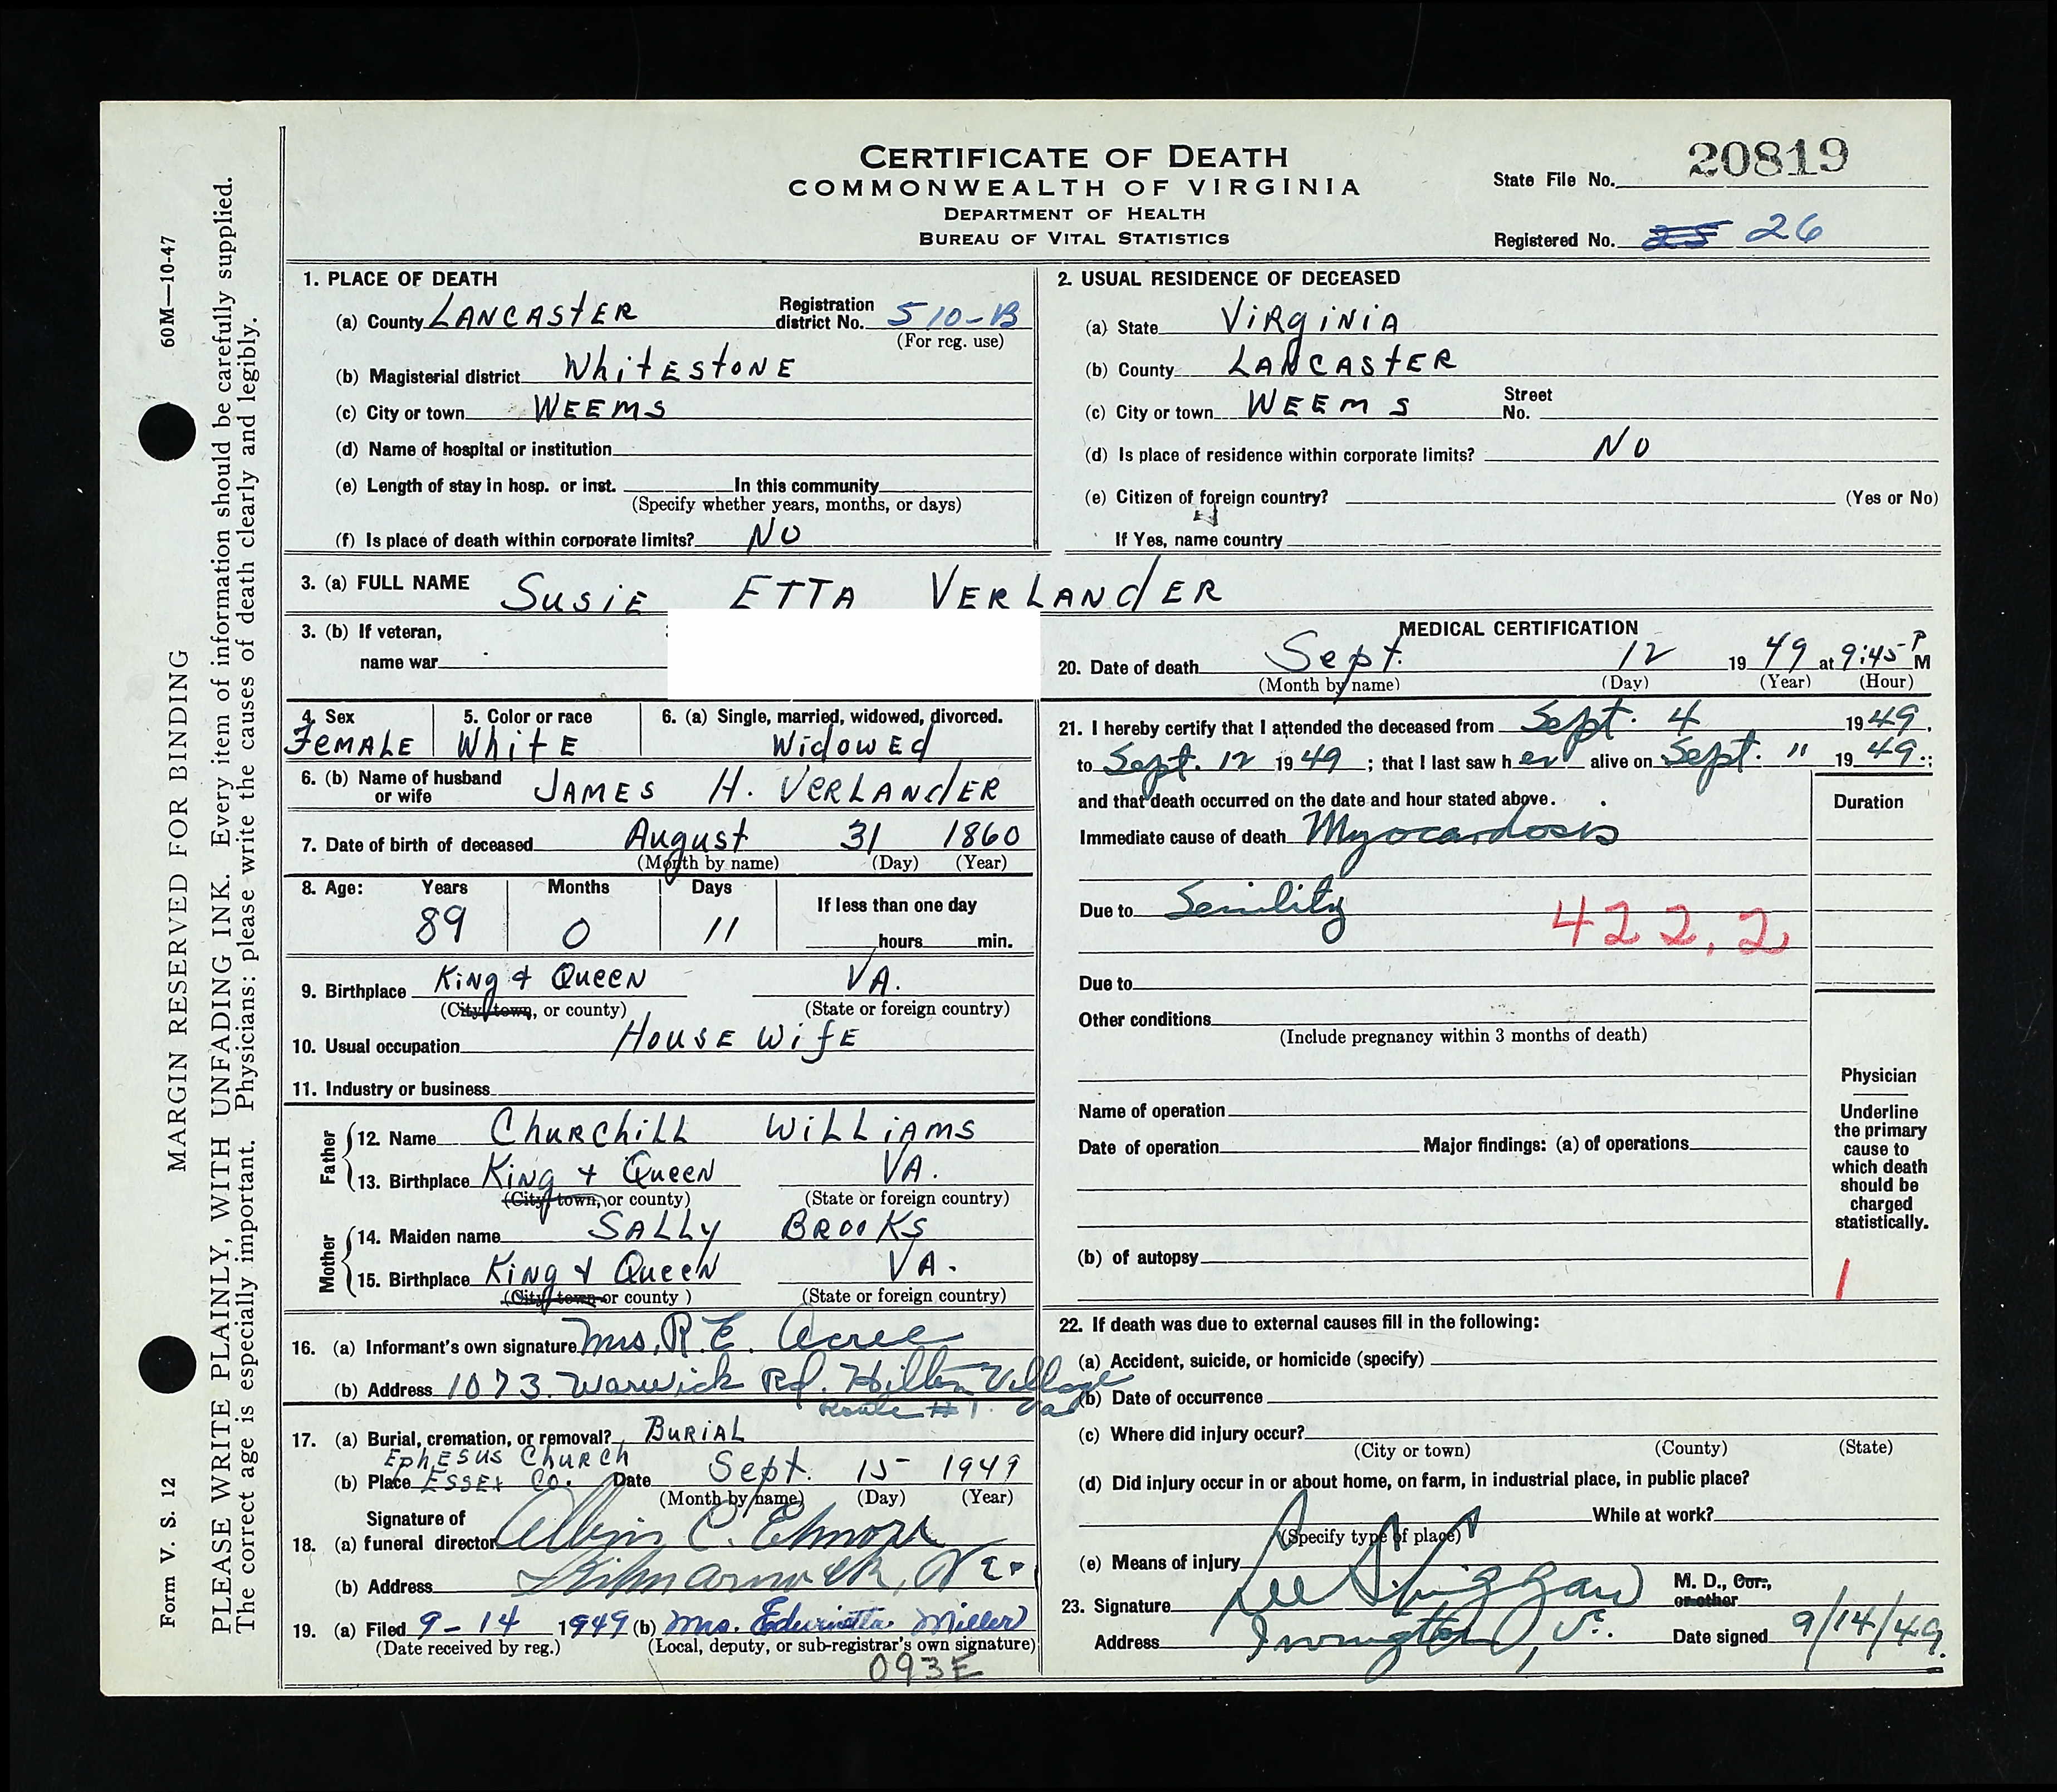 CERTIFICATE OF DEATH
COMMONWEALTH OF VIRGINIA
DEPARTMENT OF HEALTH
BUREAU OF VITAL STATISTICS
State File No. 20819
Registered No. 25 26
60M—10-47
MARGIN RESERVED FOR BINDING
Form V. S. 12
PLEASE WRITE PLAINLY, WITH UNFADING INK. Every item of information should be carefully supplied.
The correct age is especially important. Physicians: please write the causes of death clearly and legibly.
1. PLACE OF DEATH
(a) County LANCASTER Registration district No. 510-B
(For reg. use)
(b) Magisterial district WhitEstoNE
(c) City or town WEEMS
(d) Name of hospital or institution
(e) Length of stay in hosp. or inst. In this community
(Specify whether years, months, or days)
(f) Is place of death within corporate limits? No
2. USUAL RESIDENCE OF DECEASED
(a) State VIRgINIA
(b) County LANCASTER
(c) City or town WEEMS Street No.
(d) Is place of residence within corporate limits? No
(e) Citizen of foreign country? (Yes or No)
If Yes, name country
3. (a) FULL NAME SusiE ETTA VERLANdER
3. (b) If veteran,
name war
4. Sex 5. Color or race 6. (a) Single, married, widowed, divorced.
FEMALE WhitE WidowEd
6. (b) Name of husband or wife JAMES H. VERLANdER
7. Date of birth of deceased August 31 1860
(Month by name) (Day) (Year)
8. Age: Years Months Days If less than one day
89 0 11 hours min.
9. Birthplace King & Queen VA.
(City, town, or county) (State or foreign country)
10. Usual occupation HousE WifE
11. Industry or business
Father
12. Name ChuRchiLL WiLLiAMS
13. Birthplace King + Queen VA.
(City, town, or county) (State or foreign country)
Mother
14. Maiden name SALLy BROOKS
15. Birthplace King & Queen VA.
(City, town or county ) (State or foreign country)
16. (a) Informant's own signature Mrs. R. E. Acree
(b) Address 1073 Warwick Rd. Hilton Village
Route #1. Va
17. (a) Burial, cremation, or removal? BuRiAL
EphESUS ChuRch
(b) Place ESSEX Co. Date Sept. 15 1949
(Month by name) (Day) (Year)
Signature of
18. (a) funeral director C.
(b) Address Kilmarnock, Va.
19. (a) Filed 9-14 1949 (b) Mrs. Miller
(Date received by reg.) (Local, deputy, or sub-registrar's own signature)
093E
MEDICAL CERTIFICATION
20. Date of death Sept. 12 19 49 at 9:45 P M
(Month by name) (Day) (Year) (Hour)
21. I hereby certify that I attended the deceased from Sept. 4 19 49,
to Sept. 12 19 49 ; that I last saw h er alive on Sept. 11 19 49.;
and that death occurred on the date and hour stated above. Duration
Immediate cause of death Myocardosis
Due to Senility 422.2
Due to
Other conditions
(Include pregnancy within 3 months of death)
Name of operation
Date of operation Major findings: (a) of operations
(b) of autopsy
Physician
Underline the primary cause to which death should be charged statistically.
1
22. If death was due to external causes fill in the following:
(a) Accident, suicide, or homicide (specify)
(b) Date of occurrence
(c) Where did injury occur?
(City or town) (County) (State)
(d) Did injury occur in or about home, on farm, in industrial place, in public place?
While at work?
(Specify type of place)
(e) Means of injury
23. Signature M. D., Cor., or other
Address Irvington, Date signed 9/14/49.